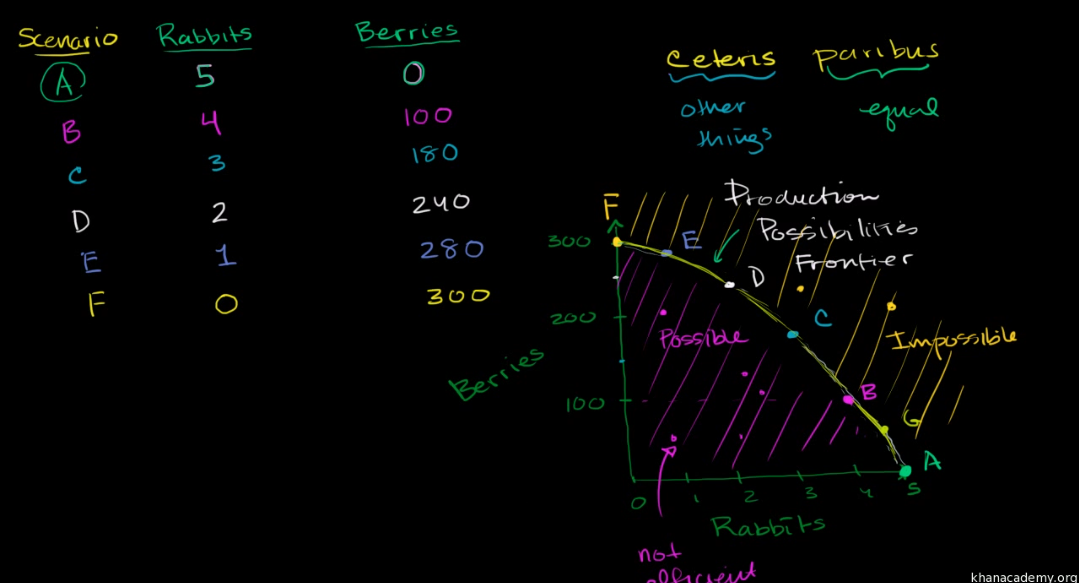 Scenario Rabbits Berries
A 5 0
B 4 100
C 3 180
D 2 240
E 1 280
F 0 300
Ceteris paribus
other equal
things
Production
Possibilities
Frontier
F
E
D
C
B
G
A
300
200
100
Berries
Possible
Impossible
0 1 2 3 4 5
Rabbits
not
efficient
khanacademy.org